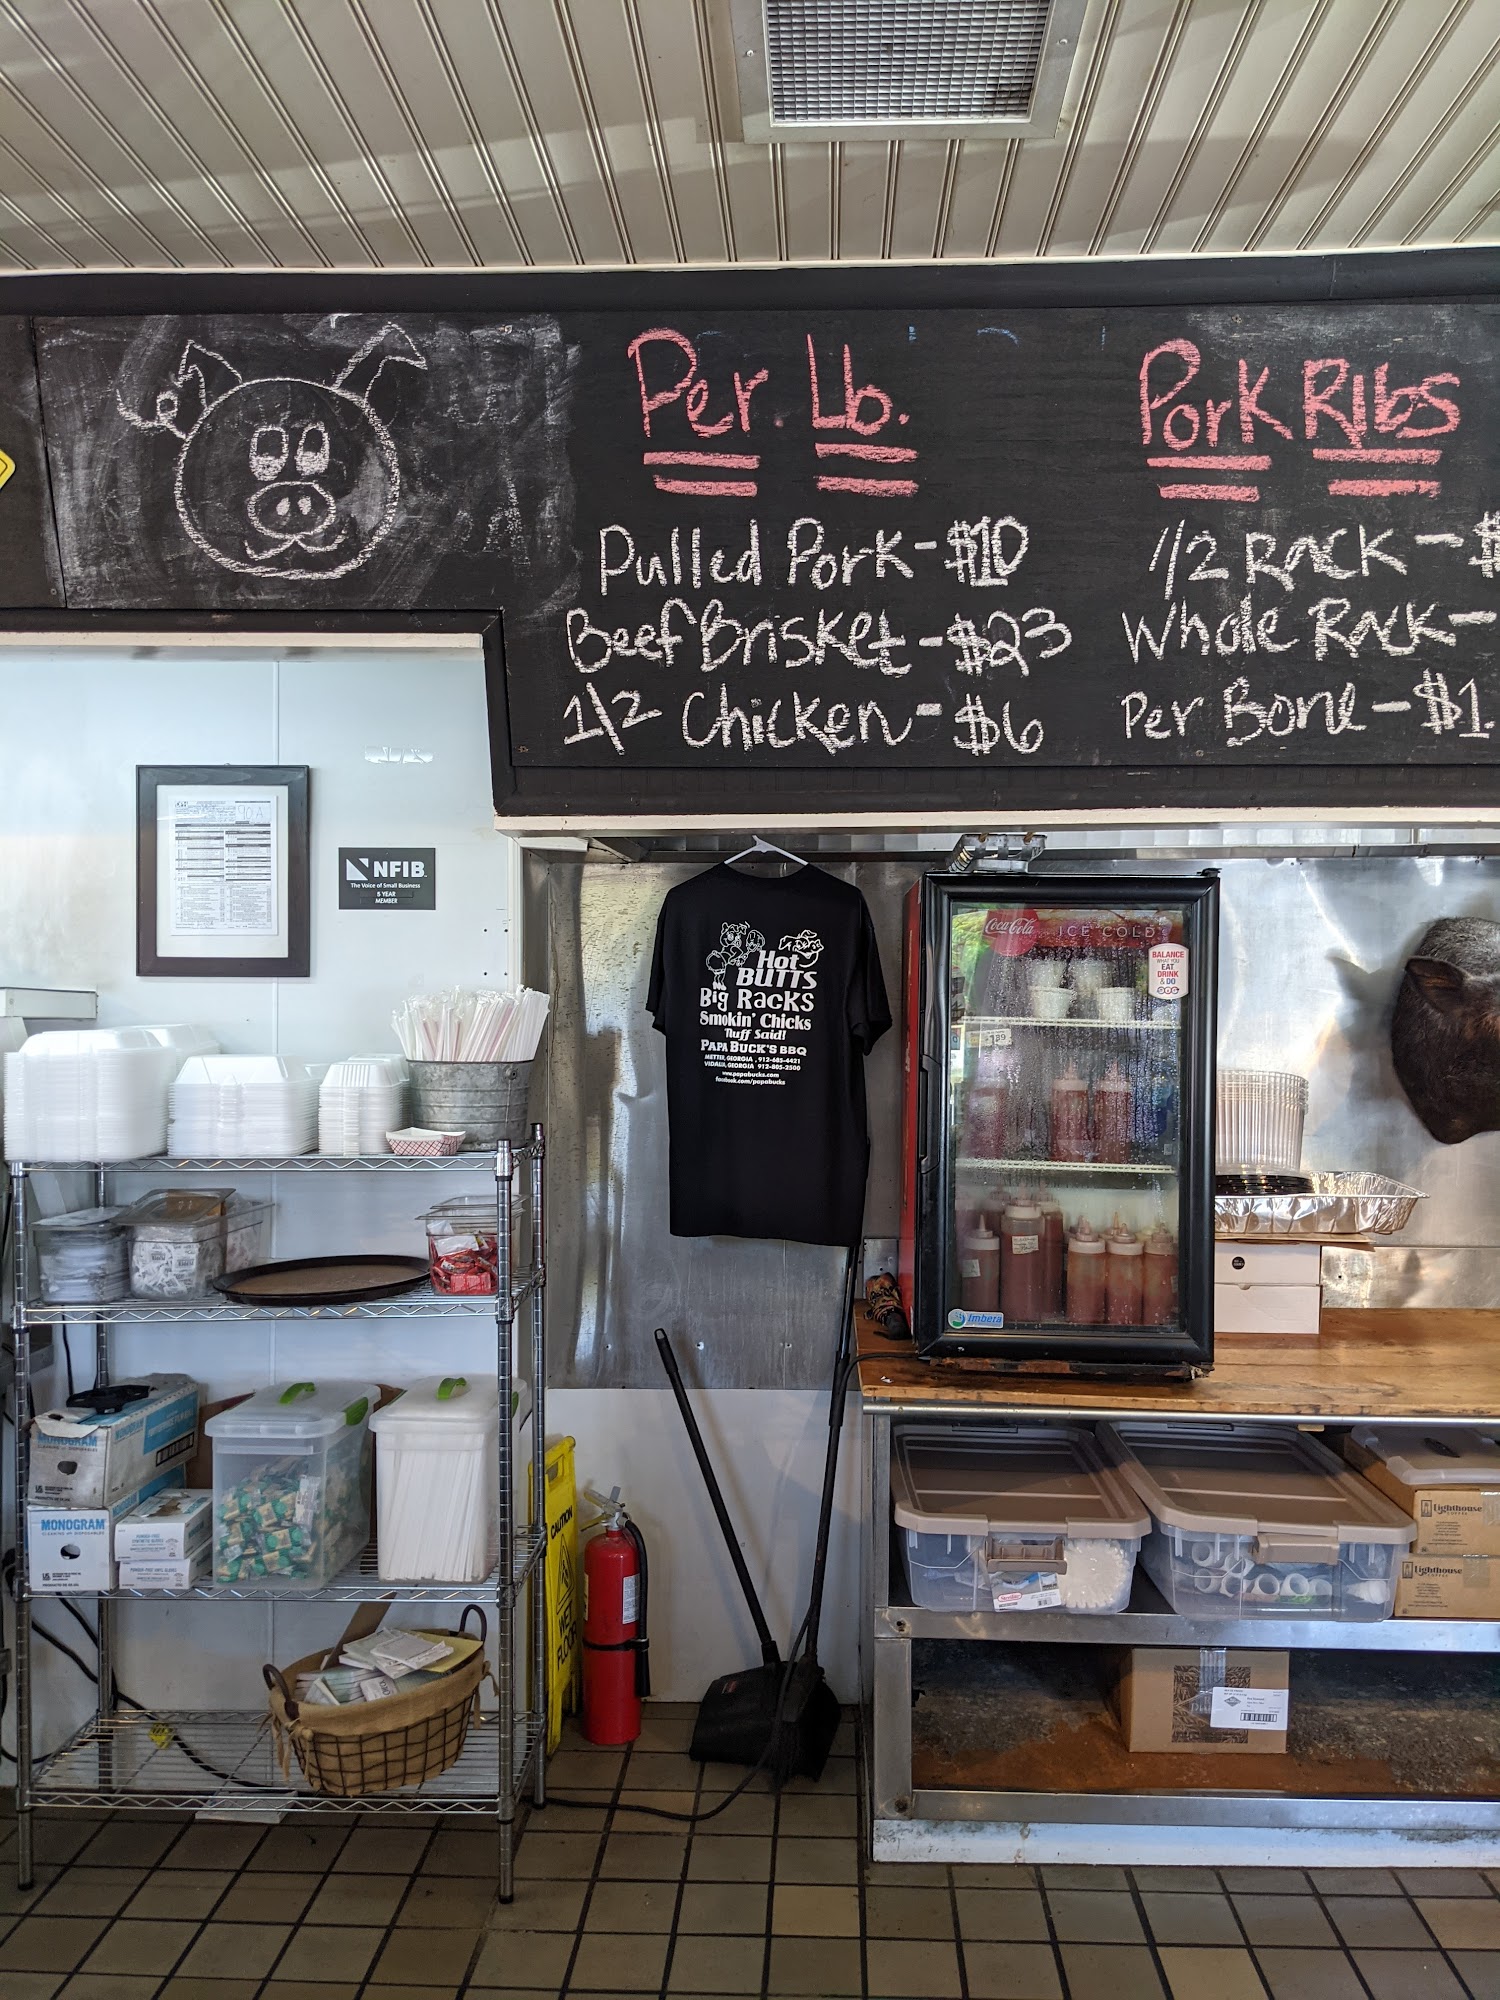 Per Lb.
Pulled Pork - $10
Beef Brisket - $23
1/2 Chicken - $6
Pork Ribs
1/2 Rack - $
Whole Rack -
Per Bone - $1.
90A
NFIB
The Voice of Small Business
5 YEAR
MEMBER
Hot
BUTTS
Big Racks
Smokin' Chicks
'Nuff Said!
PAPA BUCK'S BBQ
METTER, GEORGIA , 912-685-4421
VIDALIA, GEORGIA 912-805-2500
www.papabucks.com
facebook.com/papabucks
Coca-Cola
ICE COLD
BALANCE
WHAT YOU
EAT
DRINK
& DO
Imbera
MONOGRAM
MONOGRAM
CAUTION
WET
FLOOR
Lighthouse
Lighthouse